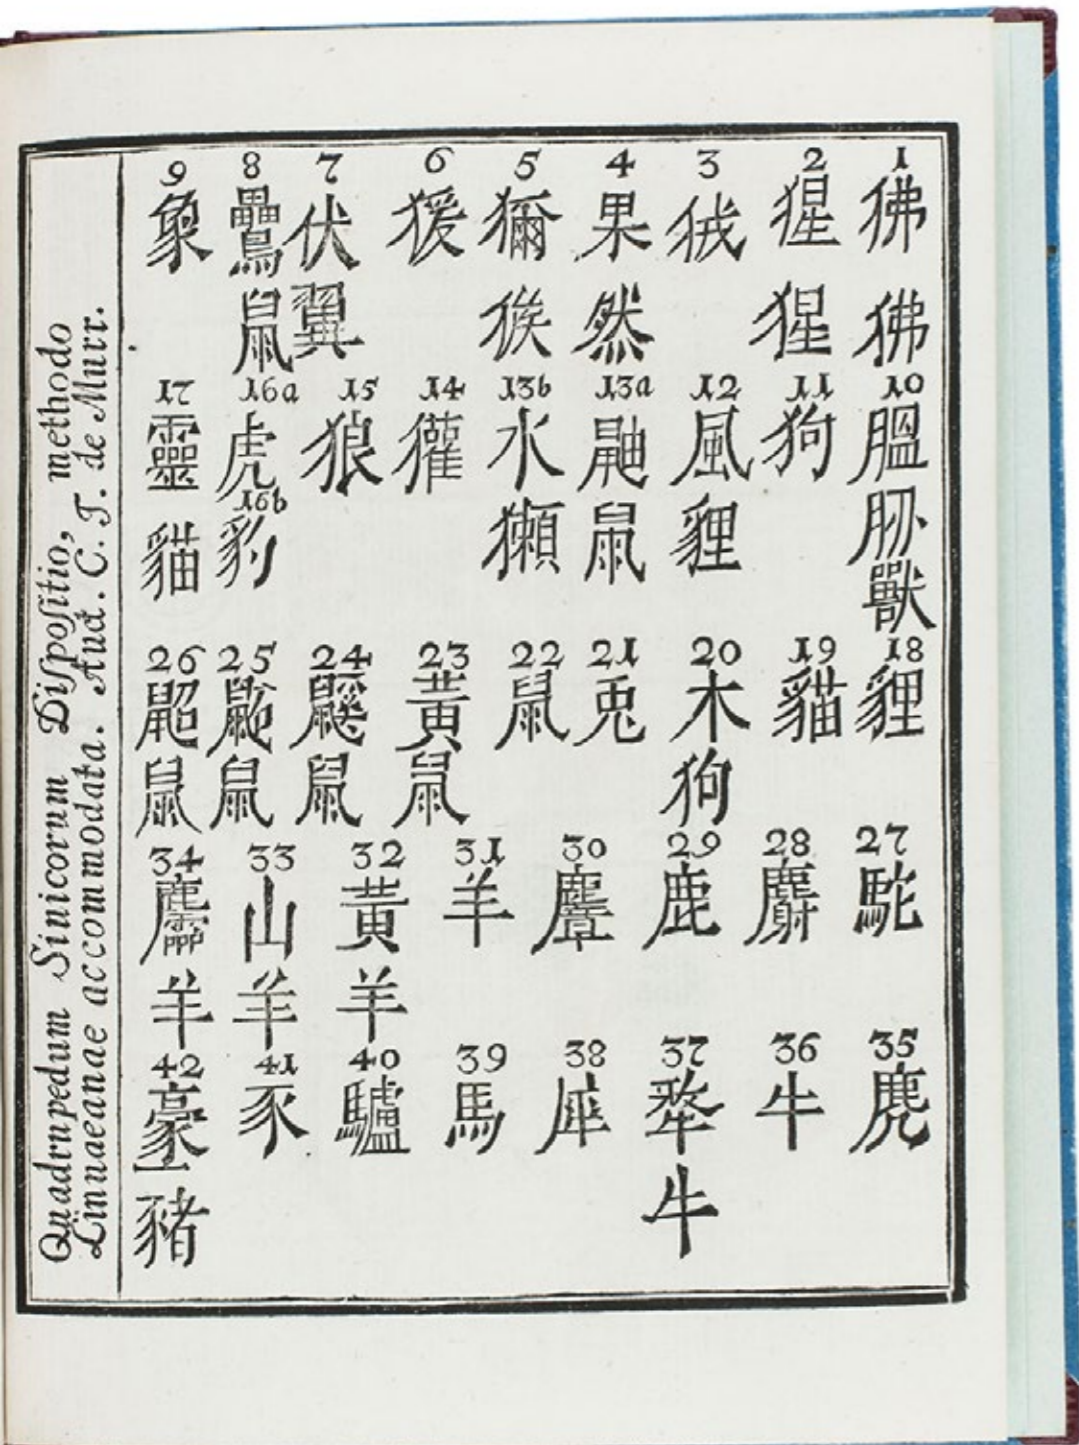 Quadrupedum Sinicorum Dispositio, methodo
Linnaeanae accommodata. Auct. C. T. de Murr.
1 狒狒
2 猩猩
3 狨
4 果然
5 獼猴
6 猨
7 伏翼
8 鸓鼠
9 象
10 膃肭獸
11 狗
12 風貍
13a 鼬鼠
13b 水獺
14 獾
15 狼
16a 虎
16b 豹
17 靈貓
18 貍
19 貓
20 木狗
21 兎
22 鼠
23 黃鼠
24 鼷鼠
25 鼠
26 鼦鼠
27 駝
28 麝
29 鹿
30 麞
31 羊
32 黃羊
33 山羊
34 麢羊
35 麂
36 牛
37 犛牛
38 犀
39 馬
40 驢
41 豕
42 豪豬